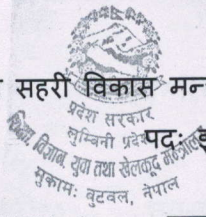 सहरी विकास मन्
प्रदेश सरकार
लुम्बिनी प्रदेश
पदः इ
शिक्षा, विज्ञान, युवा तथा खेलकुद मन्त्रालय
मुकामः बुटवल, नेपाल